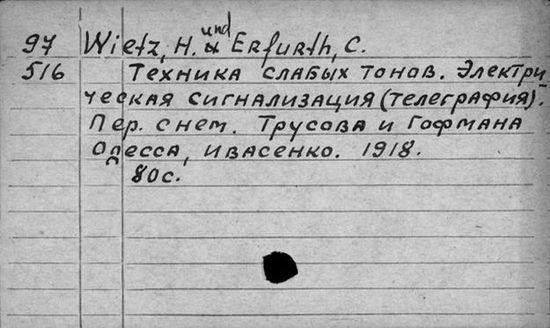 97 Wietz, H. und & Erfurth, C.
516 Техника слабых тонов. Электри-
ческая сигнализация (телеграфия).
Пер. с нем. Трусова и Гофмана
Одесса, Ивасенко. 1918.
80с.